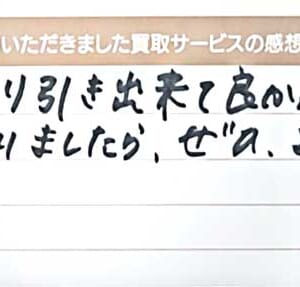 いただきました買取サービスの感想
り引き出来て良か
りましたら、ぜひ、